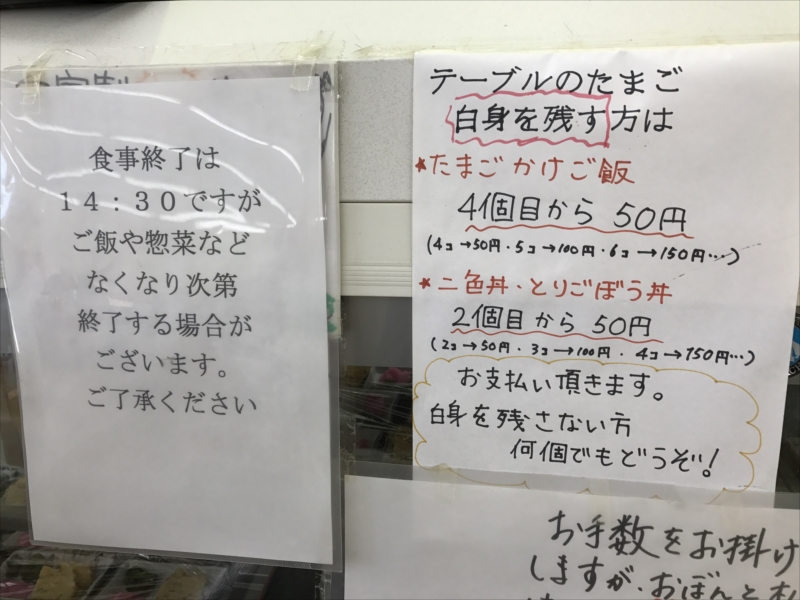 食事終了は
１４：３０ですが
ご飯や惣菜など
なくなり次第
終了する場合が
ございます。
ご了承ください
テーブルのたまご
白身を残す方は
★たまごかけご飯
4個目から 50円
(4コ→50円・5コ→100円・6コ→150円…)
★二色丼・とりごぼう丼
2個目から 50円
(2コ→50円・3コ→100円・4コ→150円…)
お支払い頂きます。
白身を残さない方
何個でもどうぞ!
お手数をお掛け
しますが、おぼんと